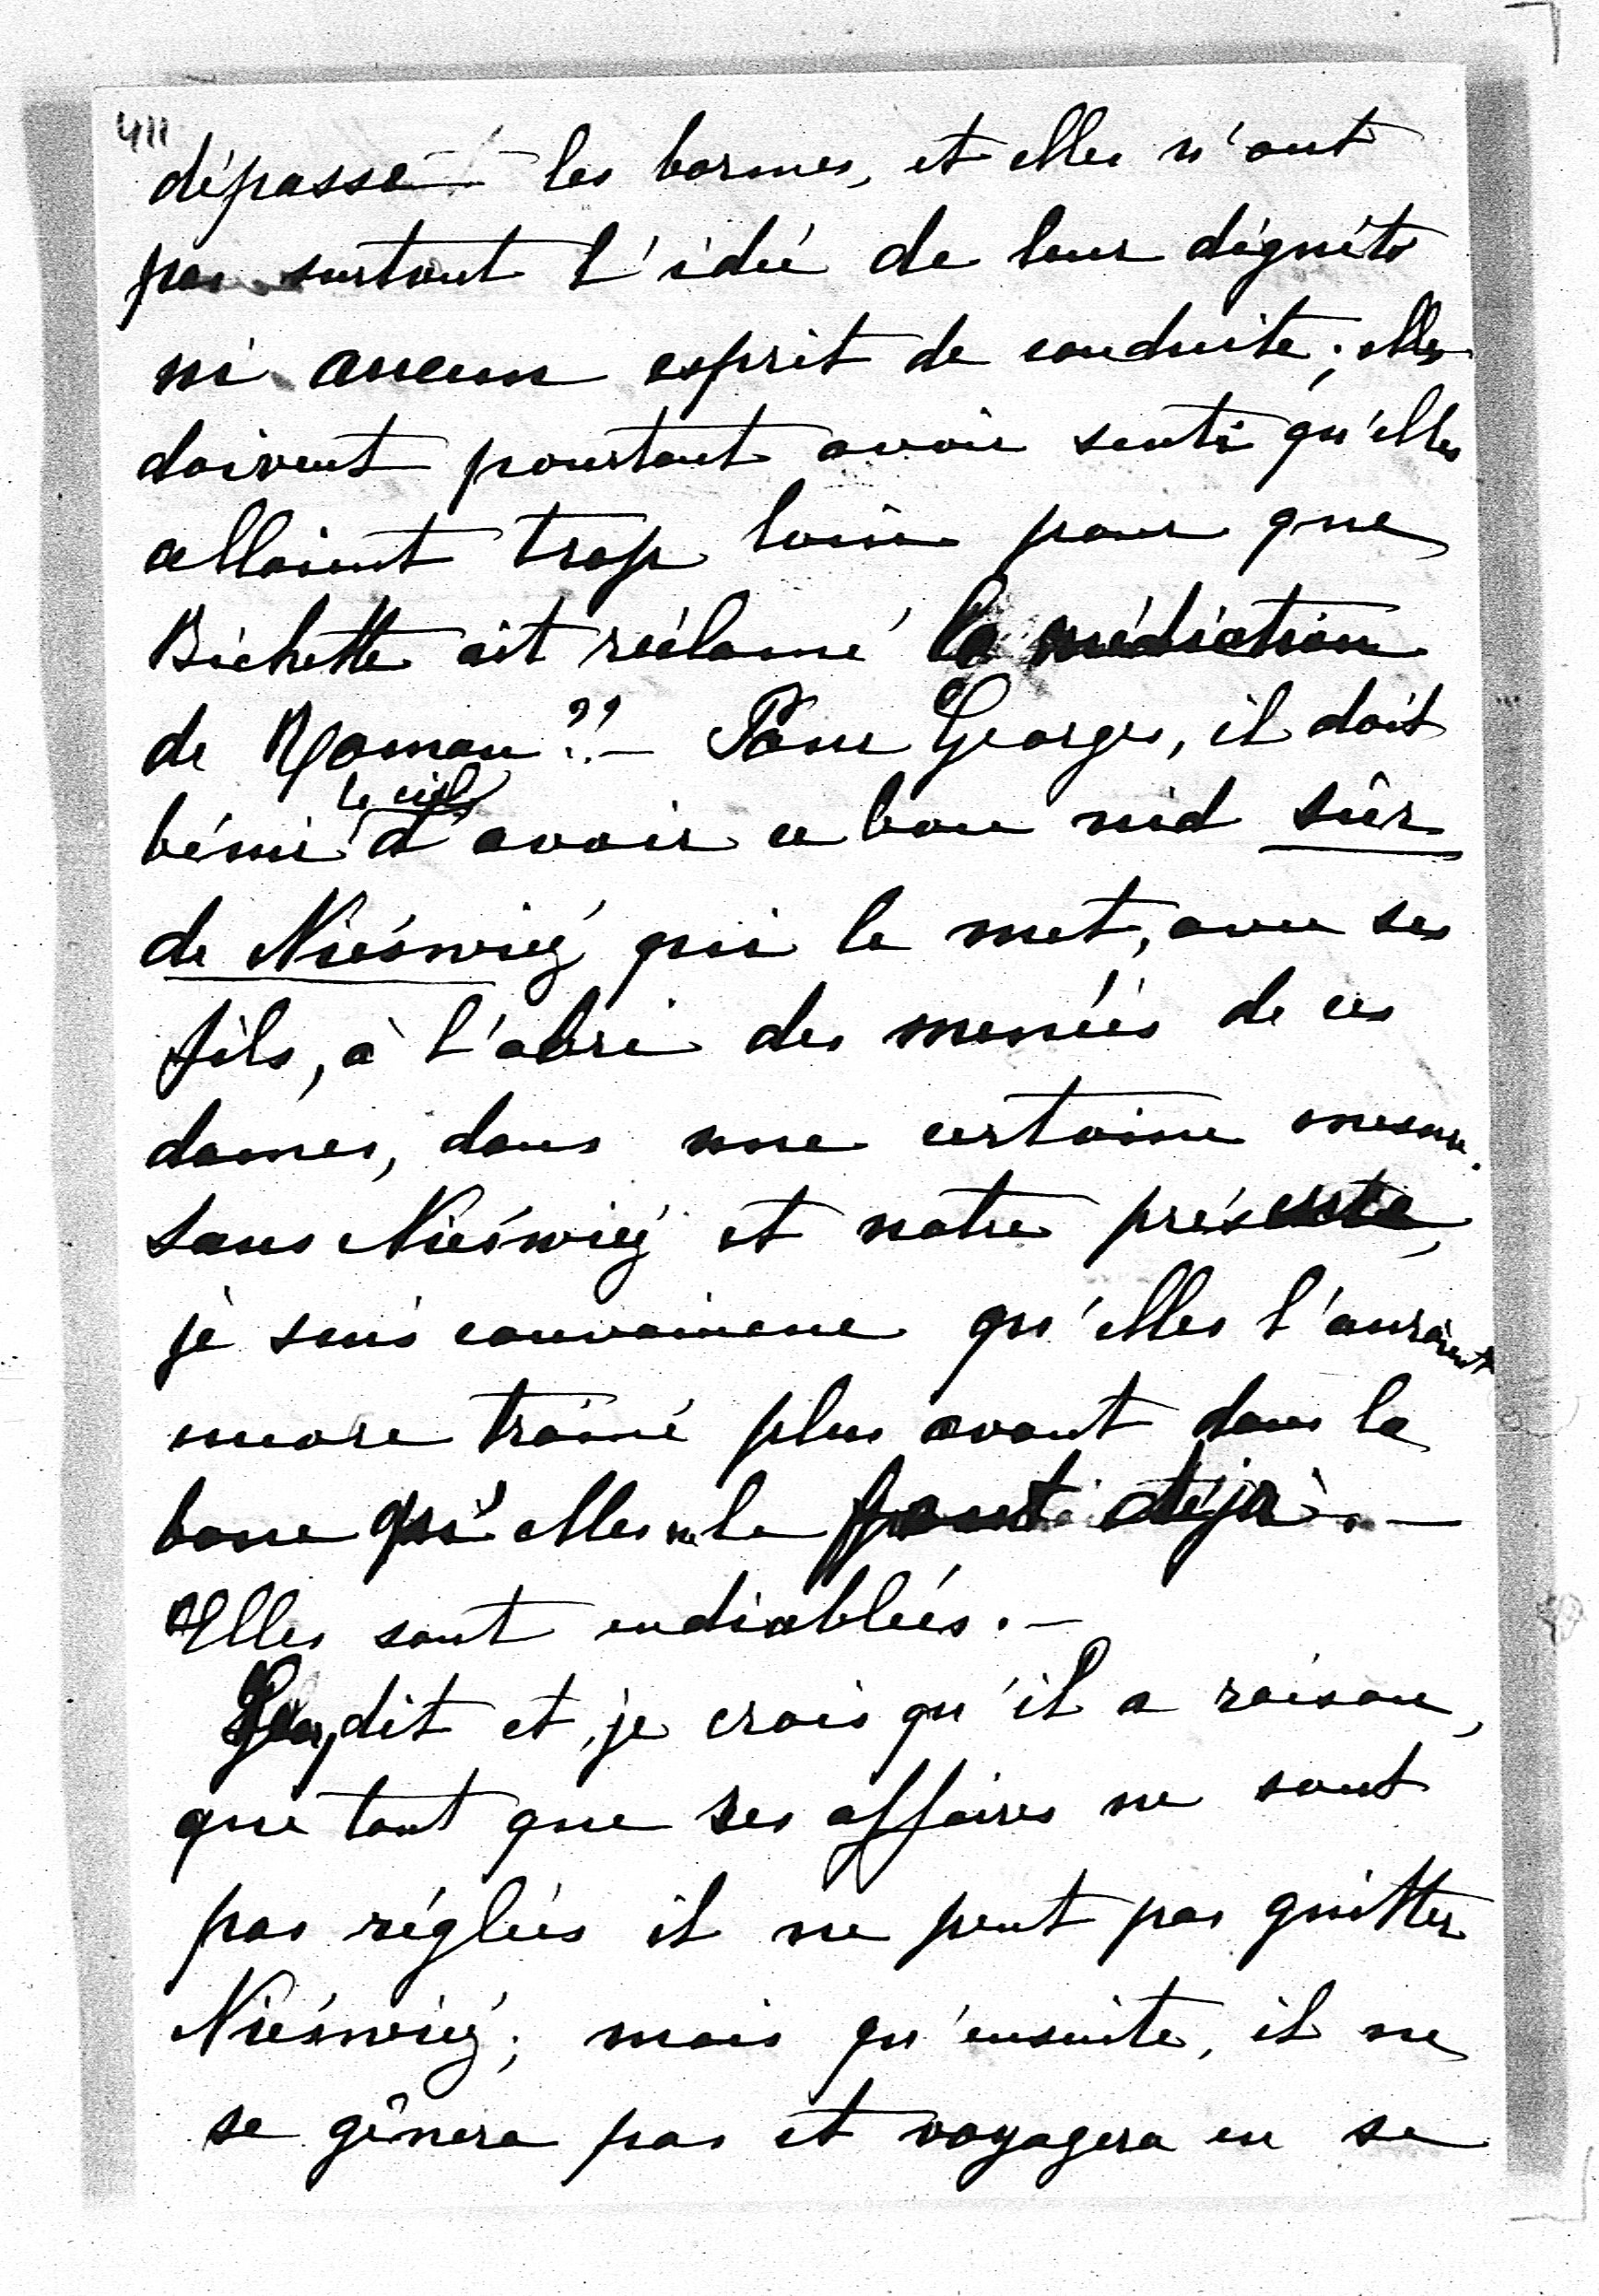 411
dépassé les bornes, et elles n'ont
pas surtout l'idée de leur dignité
ni aucun esprit de conduite; elles
doivent pourtant avoir senti qu'elles
allaient trop loin pour que
Bichette ait réclamé la médiation
de Roman?! — Pour Georges, il doit
bénir le ciel d'avoir ce bon nid sûr
de Nieśwież qui le met, avec ses
fils, à l'abri des menées de ces
dames, dans une certaine mesure.
Sans Nieśwież et notre présence,
je suis convaincue qu'elles l'auraient
encore traîné plus avant dans la
boue qu'elles ne le font déjà. —
Elles sont endiablées. —
dit et, je crois qu'il a raison,
que tant que ses affaires ne sont
pas réglées il ne peut pas quitter
Nieśwież; mais qu'ensuite, il ne
se gênera pas et voyagera en se